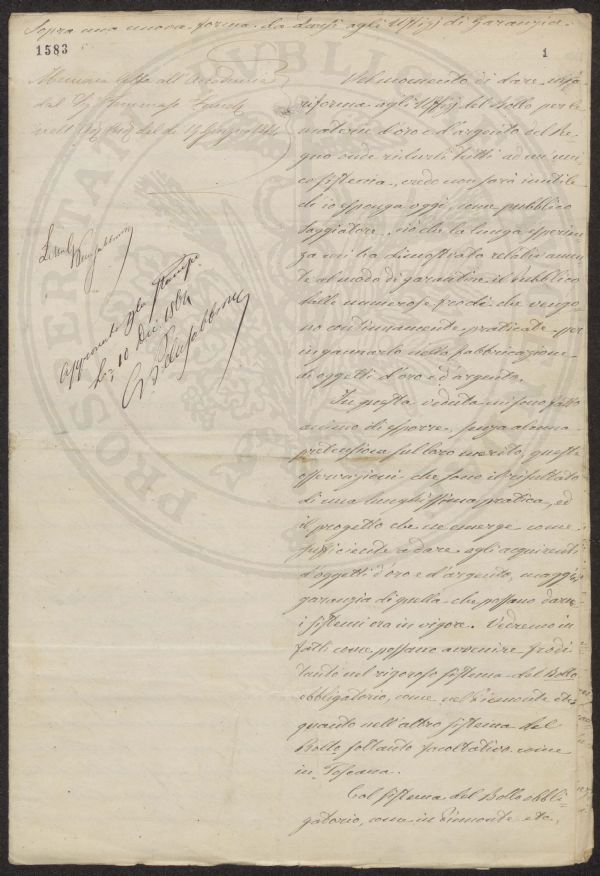 Sopra una nuova forma da darsi agli Uffizj di Garanzia.
1583
1
Memoria letta all' Accademia
dal Sig. Tommaso
nell'
Approvato per la stampa
Li 10 Dic. 1864
Nel momento di dare una
riforma agli Uffizj del Bollo per le
materie d'oro e d'argento del Re-
gno onde ridurli tutti ad un uni-
co sistema, credo non sarà inutile
di io esponga oggi, come pubblico
Saggiatore, ciò che la lunga esperien-
za mi ha dimostrato relativamen-
te al modo di garantire il Pubblico
dalle numerose frodi che vengo-
no continuamente praticate per
ingannarlo nella fabbricazione
di oggetti d'oro e d'argento.
In questa veduta mi sono fatto
animo di esporre, senza alcuna
pretensione sul loro merito, queste
osservazioni che sono il resultato
di una lunghissima pratica, ed
il progetto che ne emerge come
sufficiente a dare agli acquirenti
d'oggetti d'oro e d'argento, maggior
garanzia di quella che possano darne
i sistemi ora in vigore. Vedremo in-
fatti come possano avvenire frodi
tanto nel rigoroso sistema del Bollo
obbligatorio, come nel Piemonte etc.
quanto nell'altro sistema del
Bollo soltanto facoltativo come
in Toscana.
Col sistema del Bollo obbli-
gatorio, come in Piemonte etc,
PROSPERITAT PVBLICAE